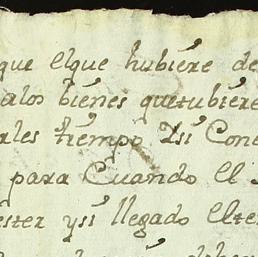 que elque hubiére de
alos biénes quetubiére
ales tiémpo Ysi Con
para Cuando el
ester ysi llegado elte